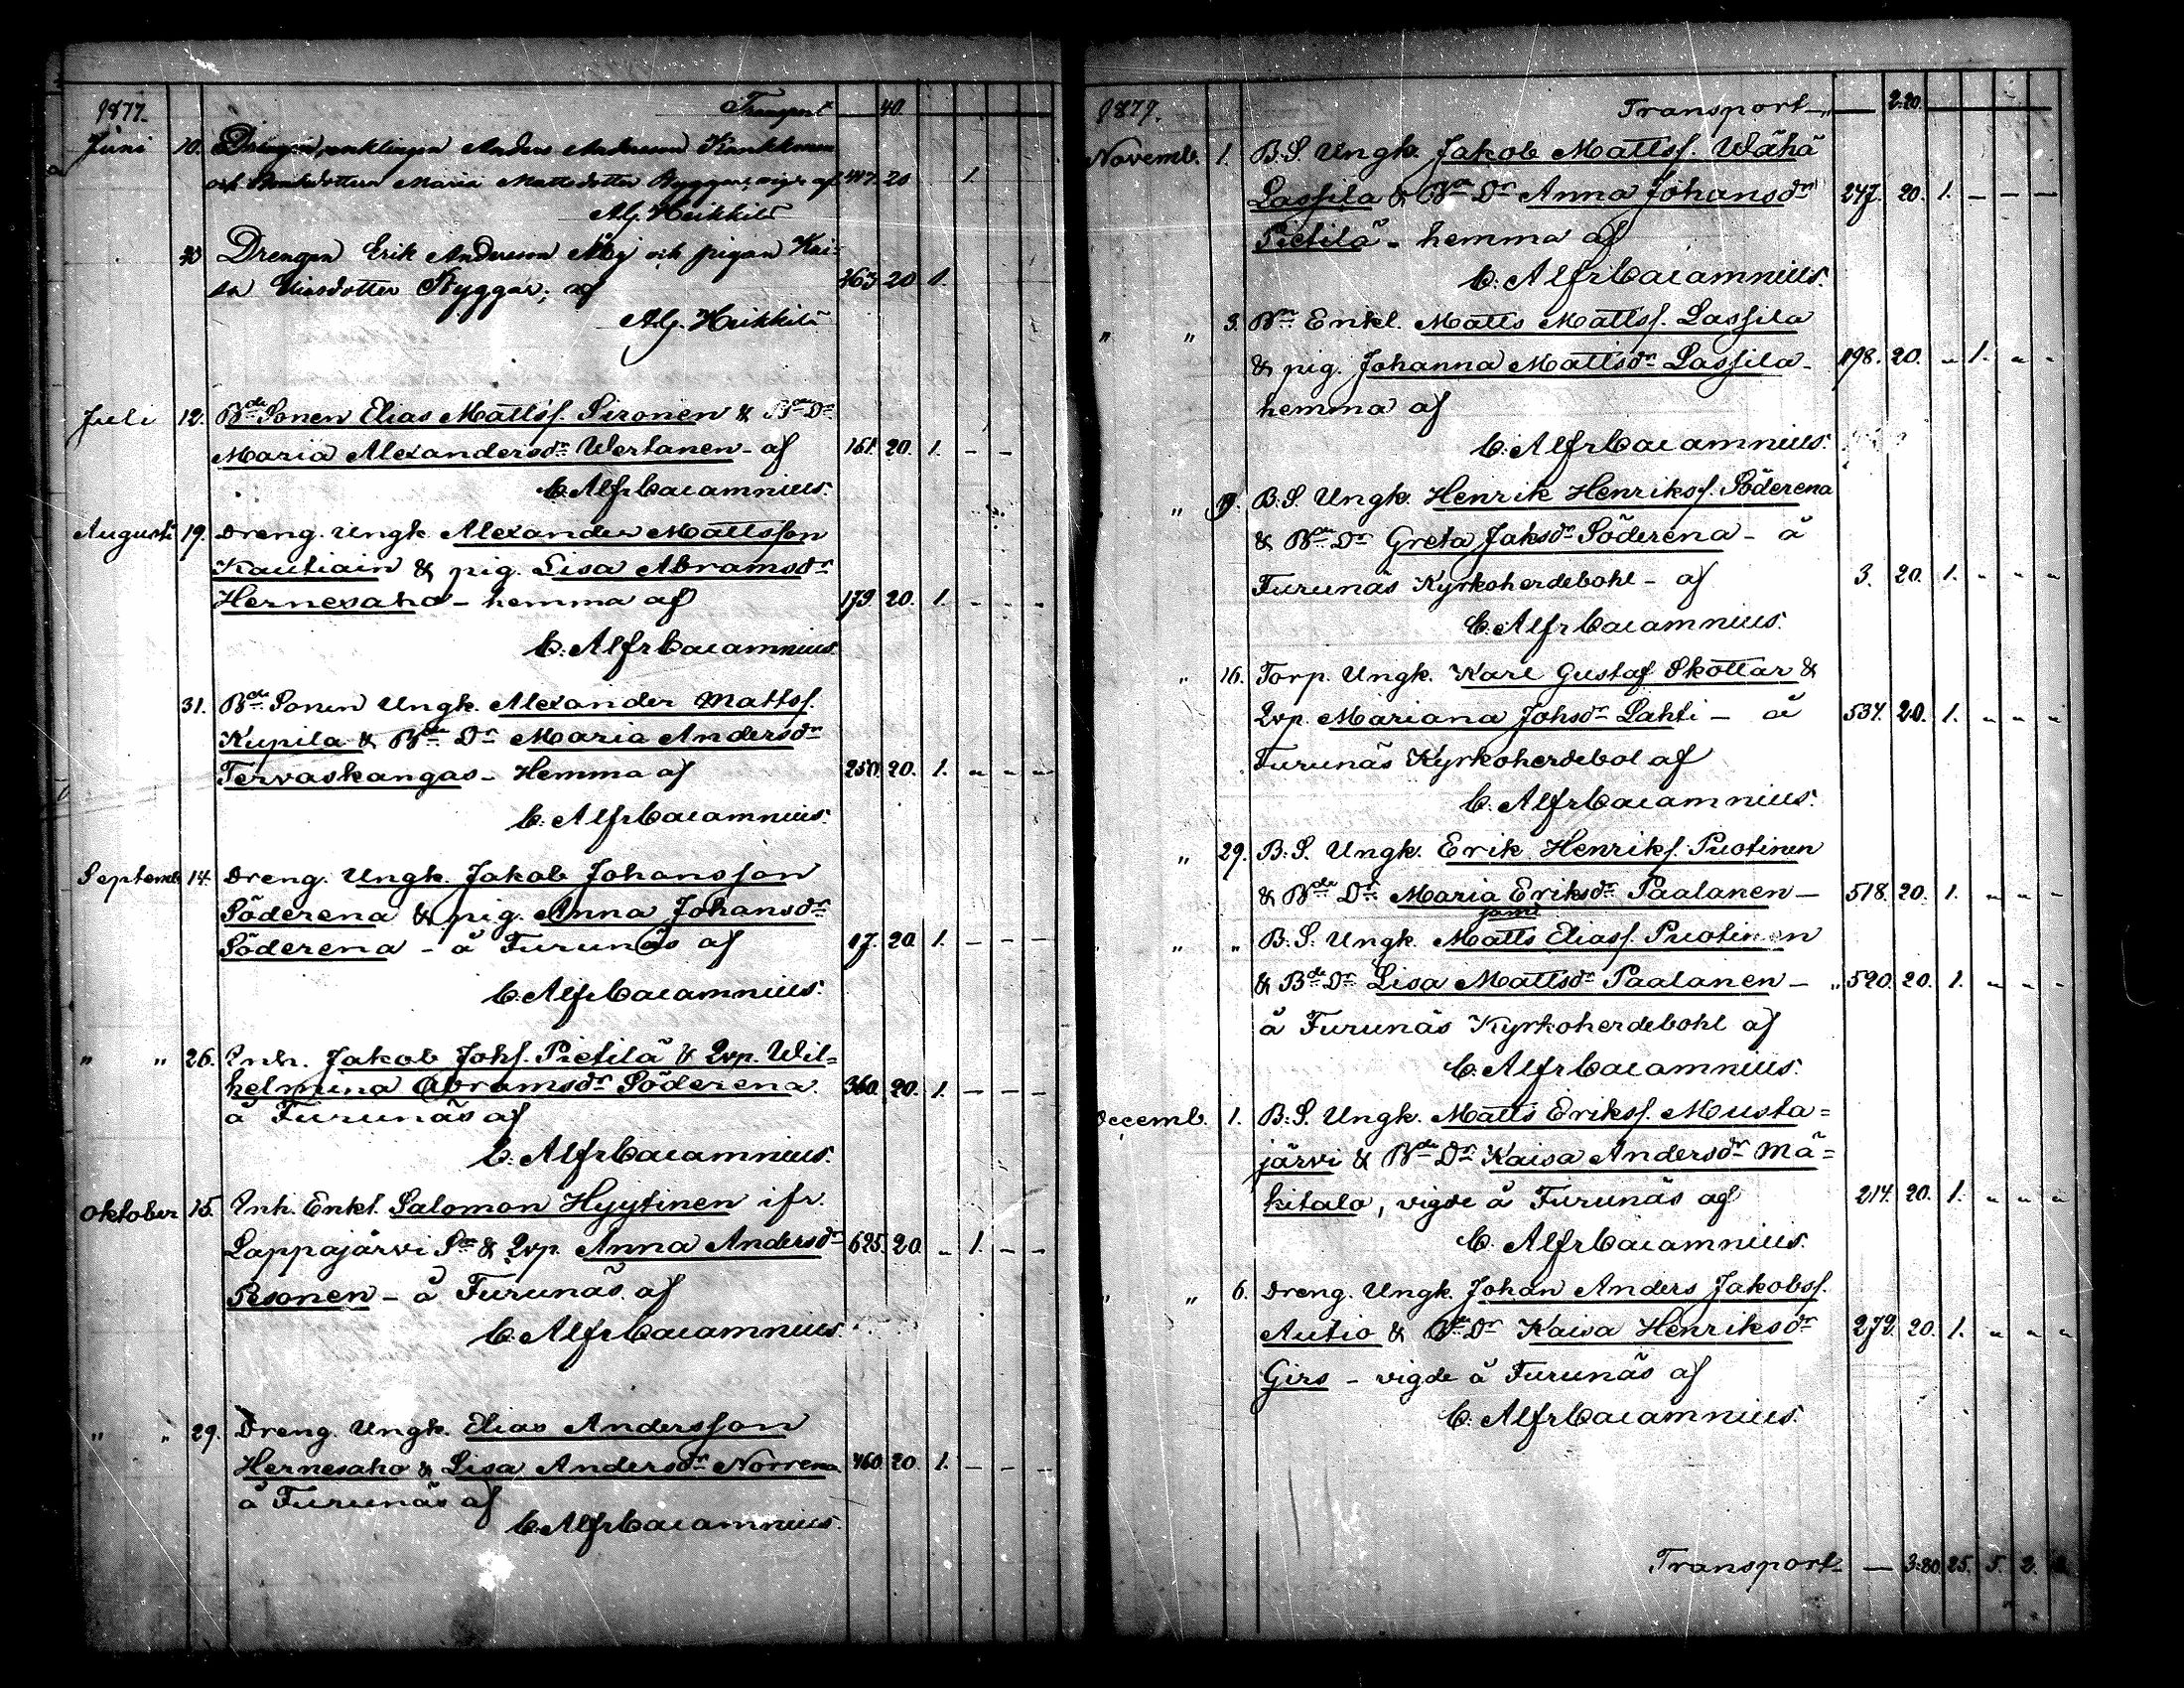 1877. Transport 40.
Juni 10. Drengen, enklingen Anders Andersson Kankkonen
och Bondedottern Maria Mattsdotter Byggar, vigde af 447. 20 1.
A.G. Heikkilä
30 Drengen Erik Andersson Åbg och pigan Kai-
sa Eliasdotter Byggar; af 263 20 1.
A.G. Heikkilä
Juli 12. Bde Sonen Elias Mattss. Sironen & Bde Dr
Maria Alexandersdr Wertanen - af 161. 20. 1. - -
C. Alfr Cajamnius.
Augusti 19. Dreng. Ungk. Alexander Mattsson
Kautiain & pig. Lisa Abramsdr
Hernesaho - hemma af 179. 20. 1. - - -
C. Alfr Cajamnius.
31. Bde Sonen Ungk. Alexander Mattss.
Kupila & Bde Dr Maria Andersdr
Tervaskangas - Hemma af 250. 20. 1. - - -
C. Alfr Cajamnius.
Septemb. 14. Dreng. Ungk. Jakob Johansson
Söderena & pig. Anna Johansdr
Söderena - å Furunäs af 17. 20. 1. - - -
C. Alfr Cajamnius.
" " 26. Inh. Jakob Johs. Pietilä & Qvp. Wil=
helmina Abramsdr Söderena 360. 20. 1. - - -
å Furunäs af
C. Alfr Cajamnius.
Oktober 15. Inh. Enkl. Salomon Hyytinen ifr.
Lappajärvi Sn & Qvp. Anna Andersdr 625. 20. - 1. - -
Pesonen - å Furunäs af
C. Alfr Cajamnius.
" " 29. Dreng. Ungk. Elias Andersson
Hernesaho & Lisa Andersdr Norrena 460. 20. 1. - - -
å Furunäs af
C. Alfr Cajamnius.
1877. Transport - 2:20.
Novemb. 1. B.S. Ungk. Jakob Mattss. Wähä
Lassila & Bde Dr Anna Johansdr 247. 20. 1. - - -
Pietilä - hemma af
C. Alfr Cajamnius.
" " 3. Bde Enkl. Matts Mattss. Lassila
& pig. Johanna Mattsdr Lassila - 198. 20. - 1. - -
hemma af
C. Alfr Cajamnius.
" 9. B.S. Ungk. Henrik Henrikss. Söderena
& Bde Dr Greta Jaksdr Söderena - å
Furunäs Kyrkoherdebohl - af 3. 20. 1. - - -
C. Alfr Cajamnius.
" 16. Torp. Ungk. Karl Gustaf Skottar &
Qvp. Mariana Johsdr Lahti - å 534. 20. 1. - - -
Furunäs Kyrkoherdebol af
C. Alfr Cajamnius.
" 29. B.S. Ungk. Erik Henrikss. Puotinen
& Bde Dr Maria Eriksdr Paalanen - 518. 20. 1. - - -
jämt
" " B.S. Ungk. Matts Eliass. Puotinen
& Bde Dr Lisa Mattsdr Paalanen - " 520. 20. 1. - - -
å Furunäs Kyrkoherdebohl af
C. Alfr Cajamnius.
Decemb. 1. B.S. Ungk. Matts Erikss. Musta=
järvi & Bde Dr Kaisa Andersdr Mä=
kitalo, vigde å Furunäs af 214. 20. 1. - - -
C. Alfr Cajamnius.
" " 6. Dreng. Ungk. Johan Anders Jakobss.
Autio & Bde Dr Kaisa Henriksdr 279. 20. 1. - - -
Girs - vigde å Furunäs af
C. Alfr Cajamnius.
Transport - 3:80. 25. 5. 2.